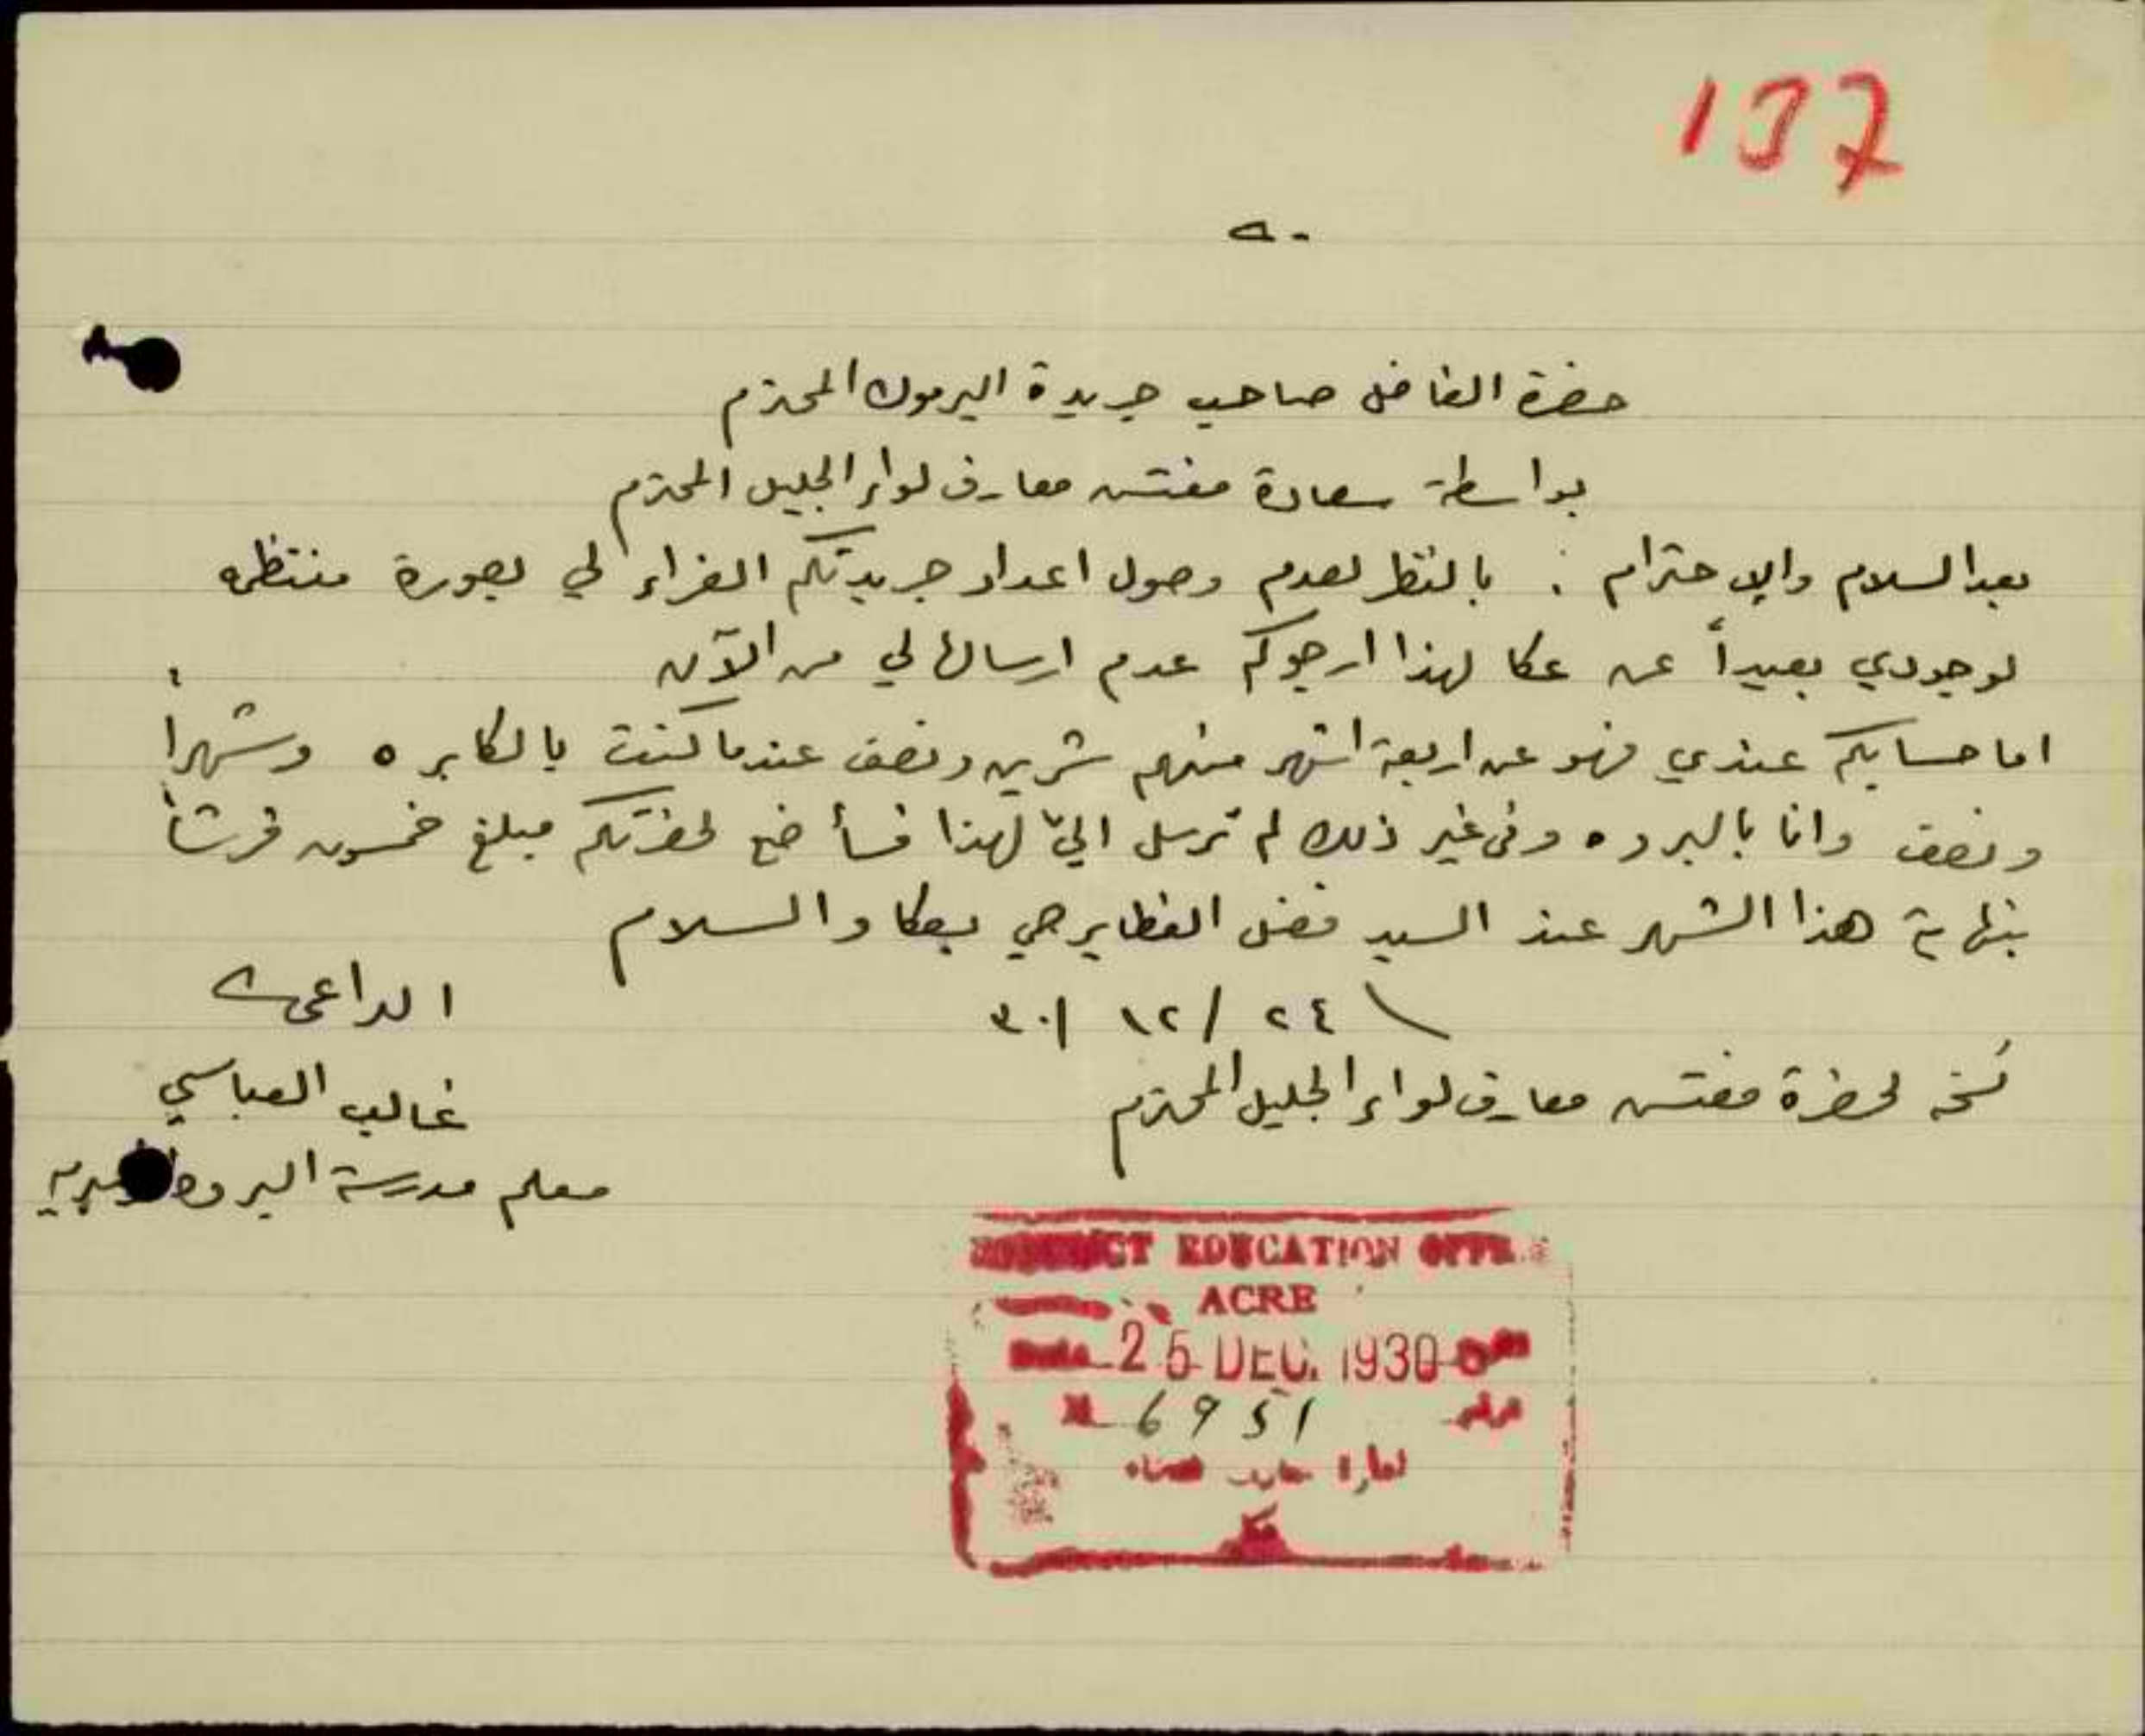 137
حضرة الفاضل صاحب جريدة اليرموك المحترم
بواسطة سعادة مفتش معارف لواء الجليل المحترم
بعد السلام والاحترام : بالنظر لعدم وصول اعداد جريدتكم الغراء لي بصورة منتظمه
لوجودي بعيداً عن عكا لهذا ارجوكم عدم ارسالها لي من الآن
اما حسابكم عندي فهو عن اربعة اشهر منهم شهرين ونصف عندما كنت بالكابره وشهراً
ونصف وانا بالبروه وفي غير ذلك لم ترسل اليّ لهذا فسأضع لحضرتكم مبلغ خمسون قرشاً
بنهاية هذا الشهر عند السيد فضل بعكا والسلام
٢٤ / ١٢ / ٣٠
الداعي
غالب العباسي
نسخه لحضرة مفتش معارف لواء الجليل المحترم
معلم مدرسة البروه
EDUCATION
ACRE
25 DEC. 1930
6951
عكا